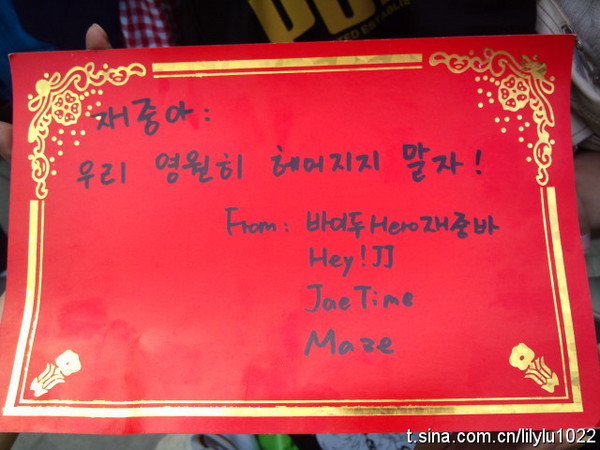 재중아:
우리 영월히 헤어지지 말자!
From: 바이두Hero재중바
Hey!JJ
JaeTime
Maze
t.sina.com.cn/lilylu1022